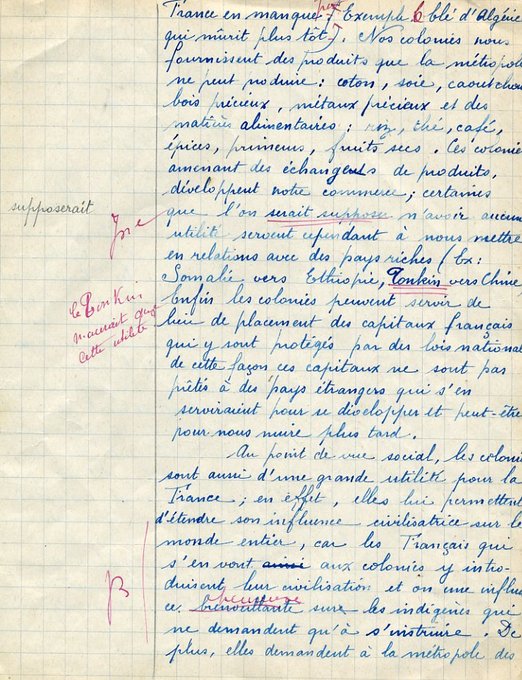 France en manque). Exemple : blé d'Algérie
qui mûrit plus tôt). Nos colonies nous
fournissent des produits que la métropole
ne peut produire : coton, soie, caoutchou
bois précieux, métaux précieux et des
matières alimentaires : riz, thé, café,
épices, primeurs, fruits secs. Ces colonie
amenant des échanges de produits,
développent notre commerce ; certaines
supposerait
que l'on serait suppose n'avoir aucune
utilité servent cependant à nous mettre
en relations avec des pays riches (Ex :
Somalie vers Ethiopie, Tonkin vers Chine
le Tonkin
n'aurait que
cette utilité
Enfin les colonies peuvent servir de
lieu de placement des capitaux français
qui y sont protégés par des lois national
de cette façon ces capitaux ne sont pas
prêtés à des pays étrangers qui s'en
serviraient pour se développer et peut-être
pour nous nuire plus tard.
Au point de vue social, les colonie
sont aussi d'une grande utilité pour la
France ; en effet, elles lui permettent
d'étendre son influence civilisatrice sur le
monde entier, car les Français qui
s'en vont ainsi aux colonies y intro-
duisent leur civilisation et on une influen
B
ce bienveillante sure les indigènes qui
ne demandent qu'à s'instruire. De
plus, elles demandent à la métropole des